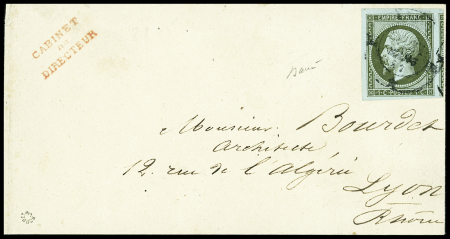 CABINET
DU
DIRECTEUR
EMPIRE FRANC
Monsieur Bourdet
Architecte
12. rue de l'Algérie
Lyon
Rhône